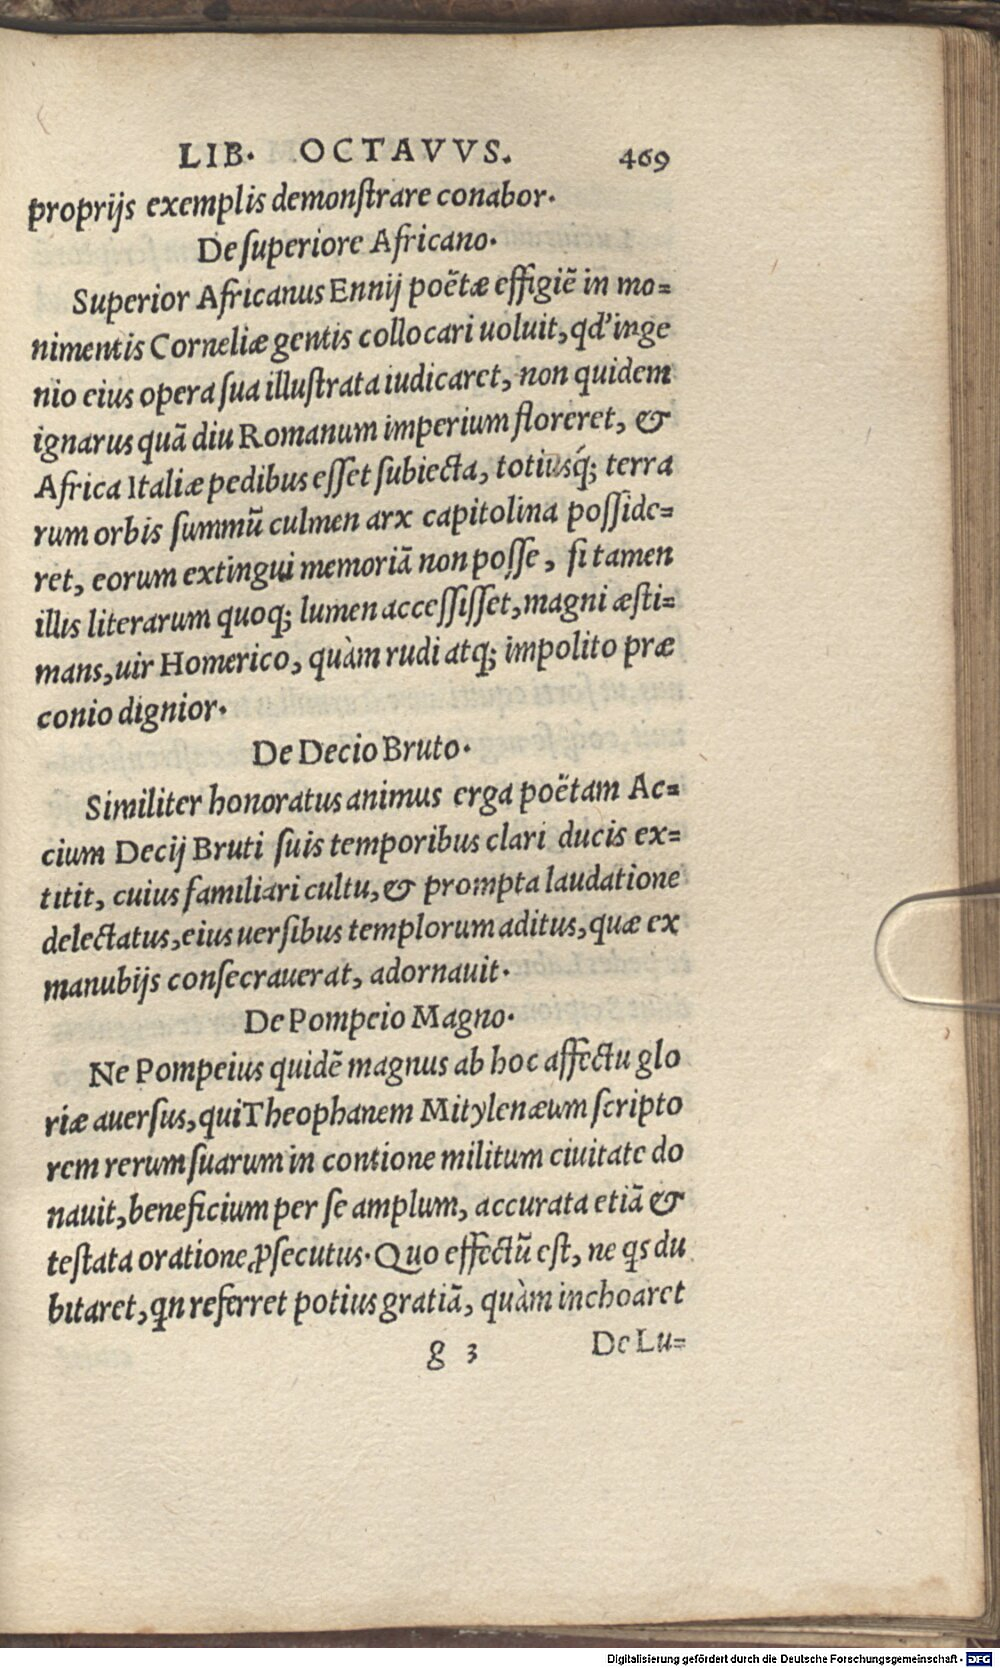 LIB. OCTAVVS. 469
proprijs exemplis demonſtrare conabor.
De ſuperiore Africano.
Superior Africanus Ennij poëtæ effigiẽ in mo=
nimentis Corneliæ gentis collocari uoluit, qd' inge
nio eius opera ſua illuſtrata iudicaret, non quidem
ignarus quã diu Romanum imperium floreret, &
Africa Italiæ pedibus eſſet ſubiecta, totiusq́; terra
rum orbis ſummũ culmen arx capitolina poſſide=
ret, eorum extingui memoriã non poſſe, ſi tamen
illis literarum quoq; lumen acceſſiſſet, magni æſti=
mans, uir Homerico, quàm rudi atq; impolito præ
conio dignior.
De Decio Bruto.
Similiter honoratus animus erga poëtam Ac=
cium Decij Bruti ſuis temporibus clari ducis ex=
titit, cuius familiari cultu, & prompta laudatione
delectatus, eius uerſibus templorum aditus, quæ ex
manubijs conſecrauerat, adornauit.
De Pompeio Magno.
Ne Pompeius quidẽ magnus ab hoc affectu glo
riæ auerſus, qui Theophanem Mitylenæum ſcripto
rem rerum ſuarum in contione militum ciuitate do
nauit, beneficium per ſe amplum, accurata etiã &
teſtata oratione ꝓſecutus. Quo effectũ eſt, ne qs du
bitaret, qn referret potius gratiã, quàm inchoaret
g 3 De Lu=
Digitalisierung gefördert durch die Deutsche Forschungsgemeinschaft - DFG